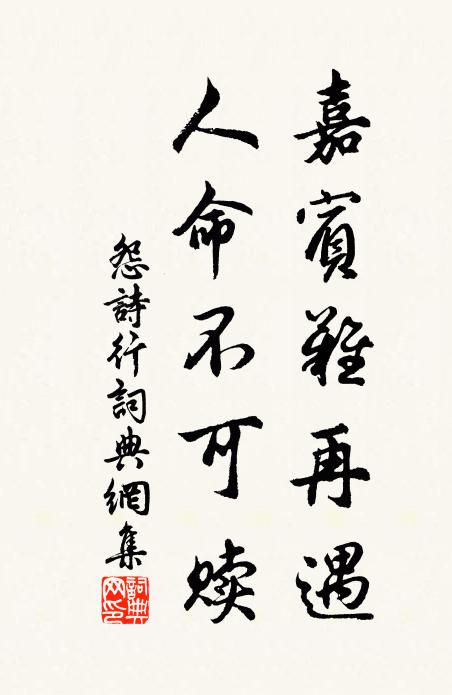 嘉賓難再遇
人命不可赎
怨詩行詞典網集
詞典网印